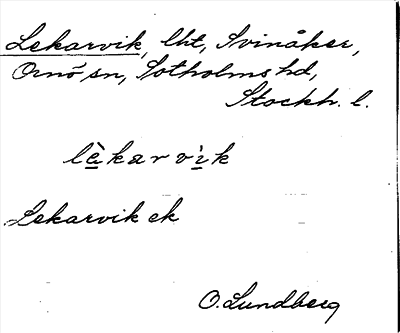 Lekarvik, lht, Svinåker,
Ornö sn, Sotholms hd,
Stockh. l.
lèkarvìk
Lekarvik ek
O. Lundberg